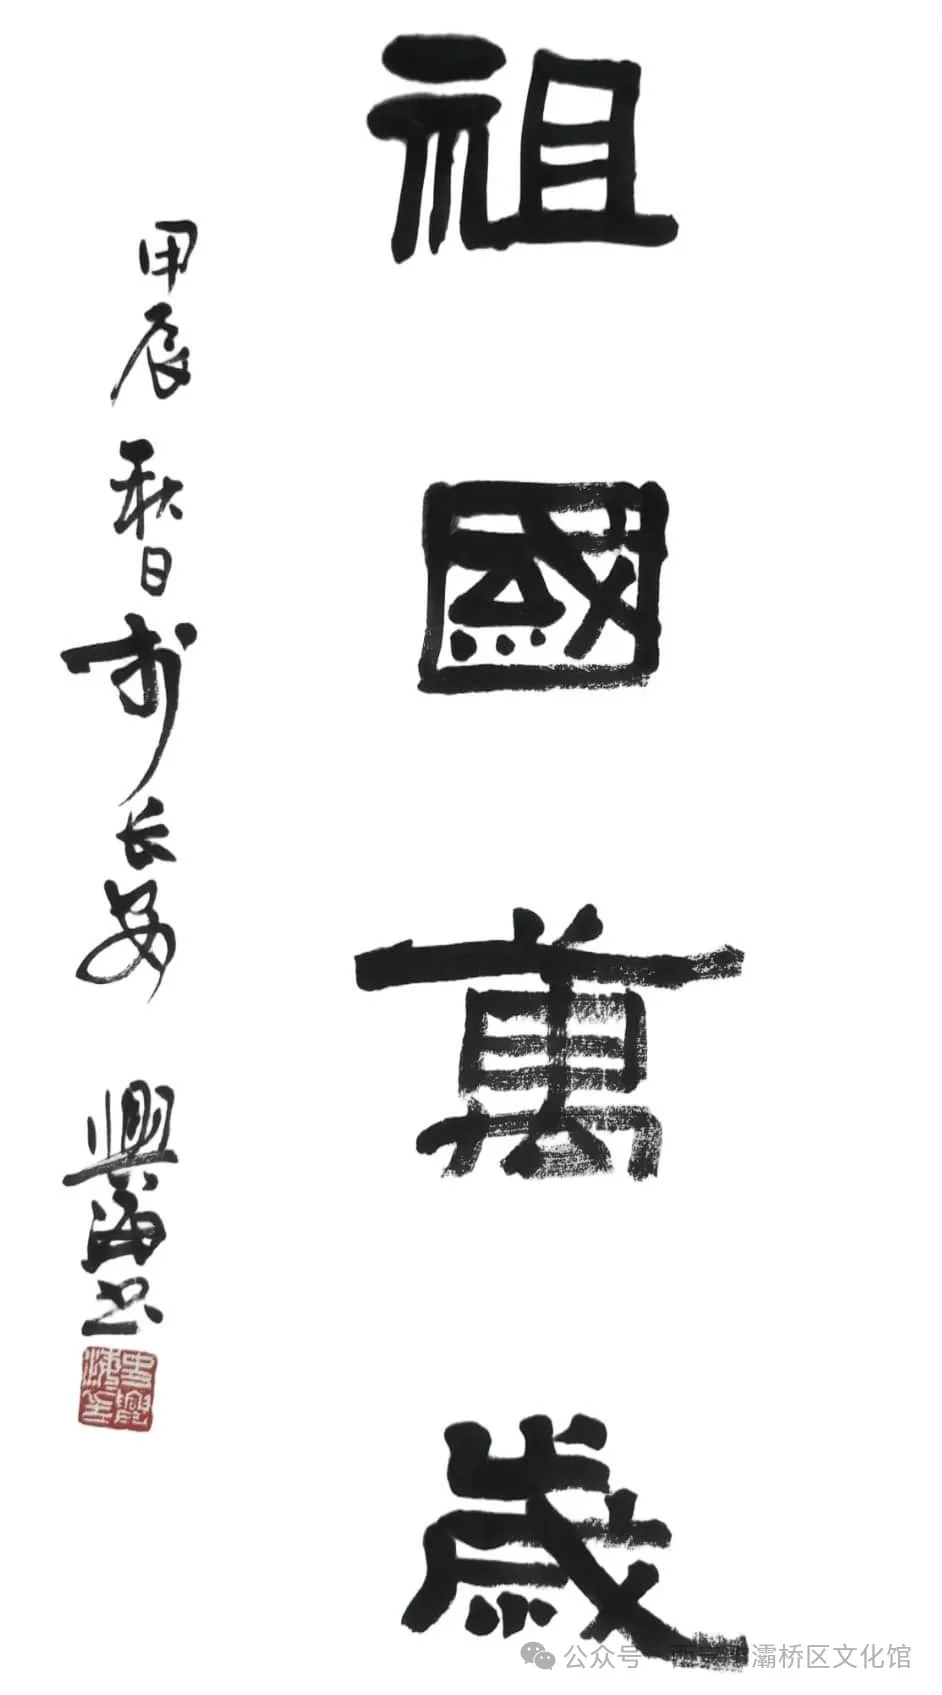 祖國萬歲
甲辰秋日於长安 興海书
公众号 西安市灞桥区文化馆